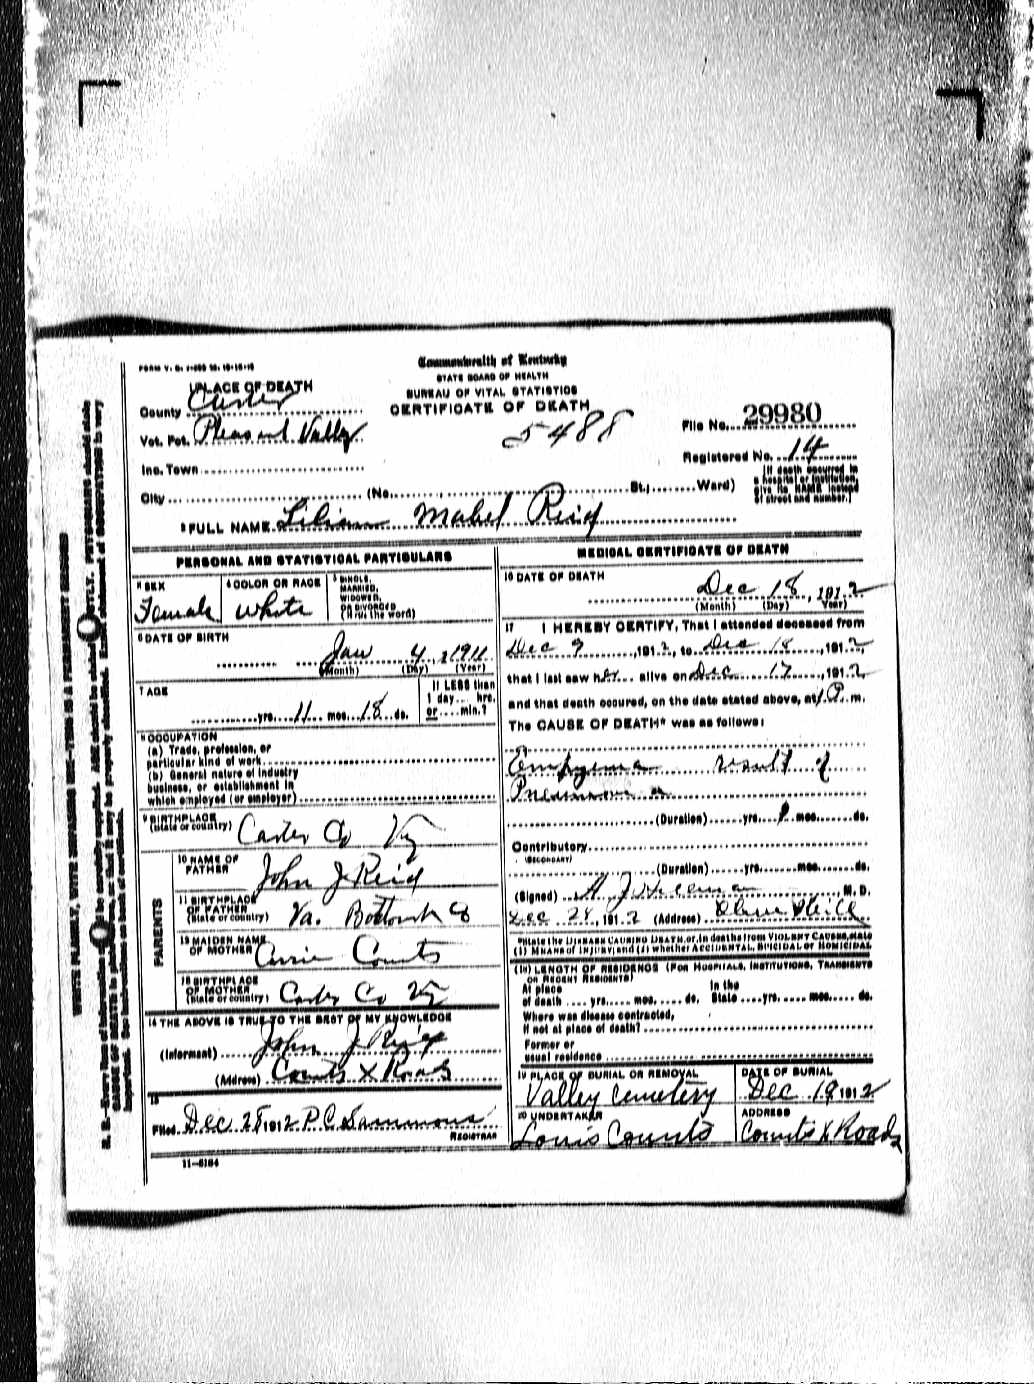 Commonwealth of Kentucky
STATE BOARD OF HEALTH
BUREAU OF VITAL STATISTICS
CERTIFICATE OF DEATH
1 PLACE OF DEATH
County Carter
Vot. Pct. Pleasant Valley
Inc. Town
City (No. St.; Ward)
5488
File No. 29980
Registered No. 14
(If death occurred in
a hospital or institution,
give its NAME instead
of street and number.)
2 FULL NAME Lilian Mabel Reid
PERSONAL AND STATISTICAL PARTICULARS
3 SEX
Female
4 COLOR OR RACE
White
5 SINGLE,
MARRIED,
WIDOWED,
OR DIVORCED
(Write the word)
6 DATE OF BIRTH
Jan 4, 1911
(Month) (Day) (Year)
7 AGE
yrs. 11 mos. 18 ds.
If LESS than
1 day... hrs.
or....min.?
8 OCCUPATION
(a) Trade, profession, or
particular kind of work
(b) General nature of industry
business, or establishment in
which employed (or employer)
9 BIRTHPLACE
(State or country) Carter Co Ky
PARENTS
10 NAME OF
FATHER John J Reid
11 BIRTHPLACE
OF FATHER
(State or country) Va.
12 MAIDEN NAME
OF MOTHER Carrie Counts
13 BIRTHPLACE
OF MOTHER
(State or country) Carter Co Ky
14 THE ABOVE IS TRUE TO THE BEST OF MY KNOWLEDGE
(Informant) John J Reid
(Address) Counts X Roads
15
Filed Dec 28 1912 P C Sammons
REGISTRAR
11-5184
MEDICAL CERTIFICATE OF DEATH
16 DATE OF DEATH
Dec 18, 1912
(Month) (Day) Year)
17 I HEREBY CERTIFY, That I attended deceased from
Dec 9, 1912, to Dec 18, 1912,
that I last saw her alive on Dec 17, 1912
and that death occured, on the date stated above, at 1 P. m.
The CAUSE OF DEATH* was as follows:
Empyema result of
Pneumonia
(Duration) yrs. mos. ds.
Contributory
(SECONDARY)
(Duration) yrs. mos. ds.
(Signed) A. J. M. D.
Dec 28, 1912 (Address) Olive Hill
*State the DISEASE CAUSING DEATH, or, in deaths from VIOLENT CAUSES, state
(1) MEANS OF INJURY; and (2) whether ACCIDENTAL, SUICIDAL or HOMICIDAL
(18) LENGTH OF RESIDENCE (FOR HOSPITALS, INSTITUTIONS, TRANSIENTS
OR RECENT RESIDENTS)
At place In the
of death yrs. mos. ds. State yrs. mos. ds.
Where was disease contracted,
if not at place of death?
Former or
usual residence
19 PLACE OF BURIAL OR REMOVAL
Valley Cemetery
DATE OF BURIAL
Dec 19 1912
20 UNDERTAKER
Louis Counts
ADDRESS
Counts X Roads